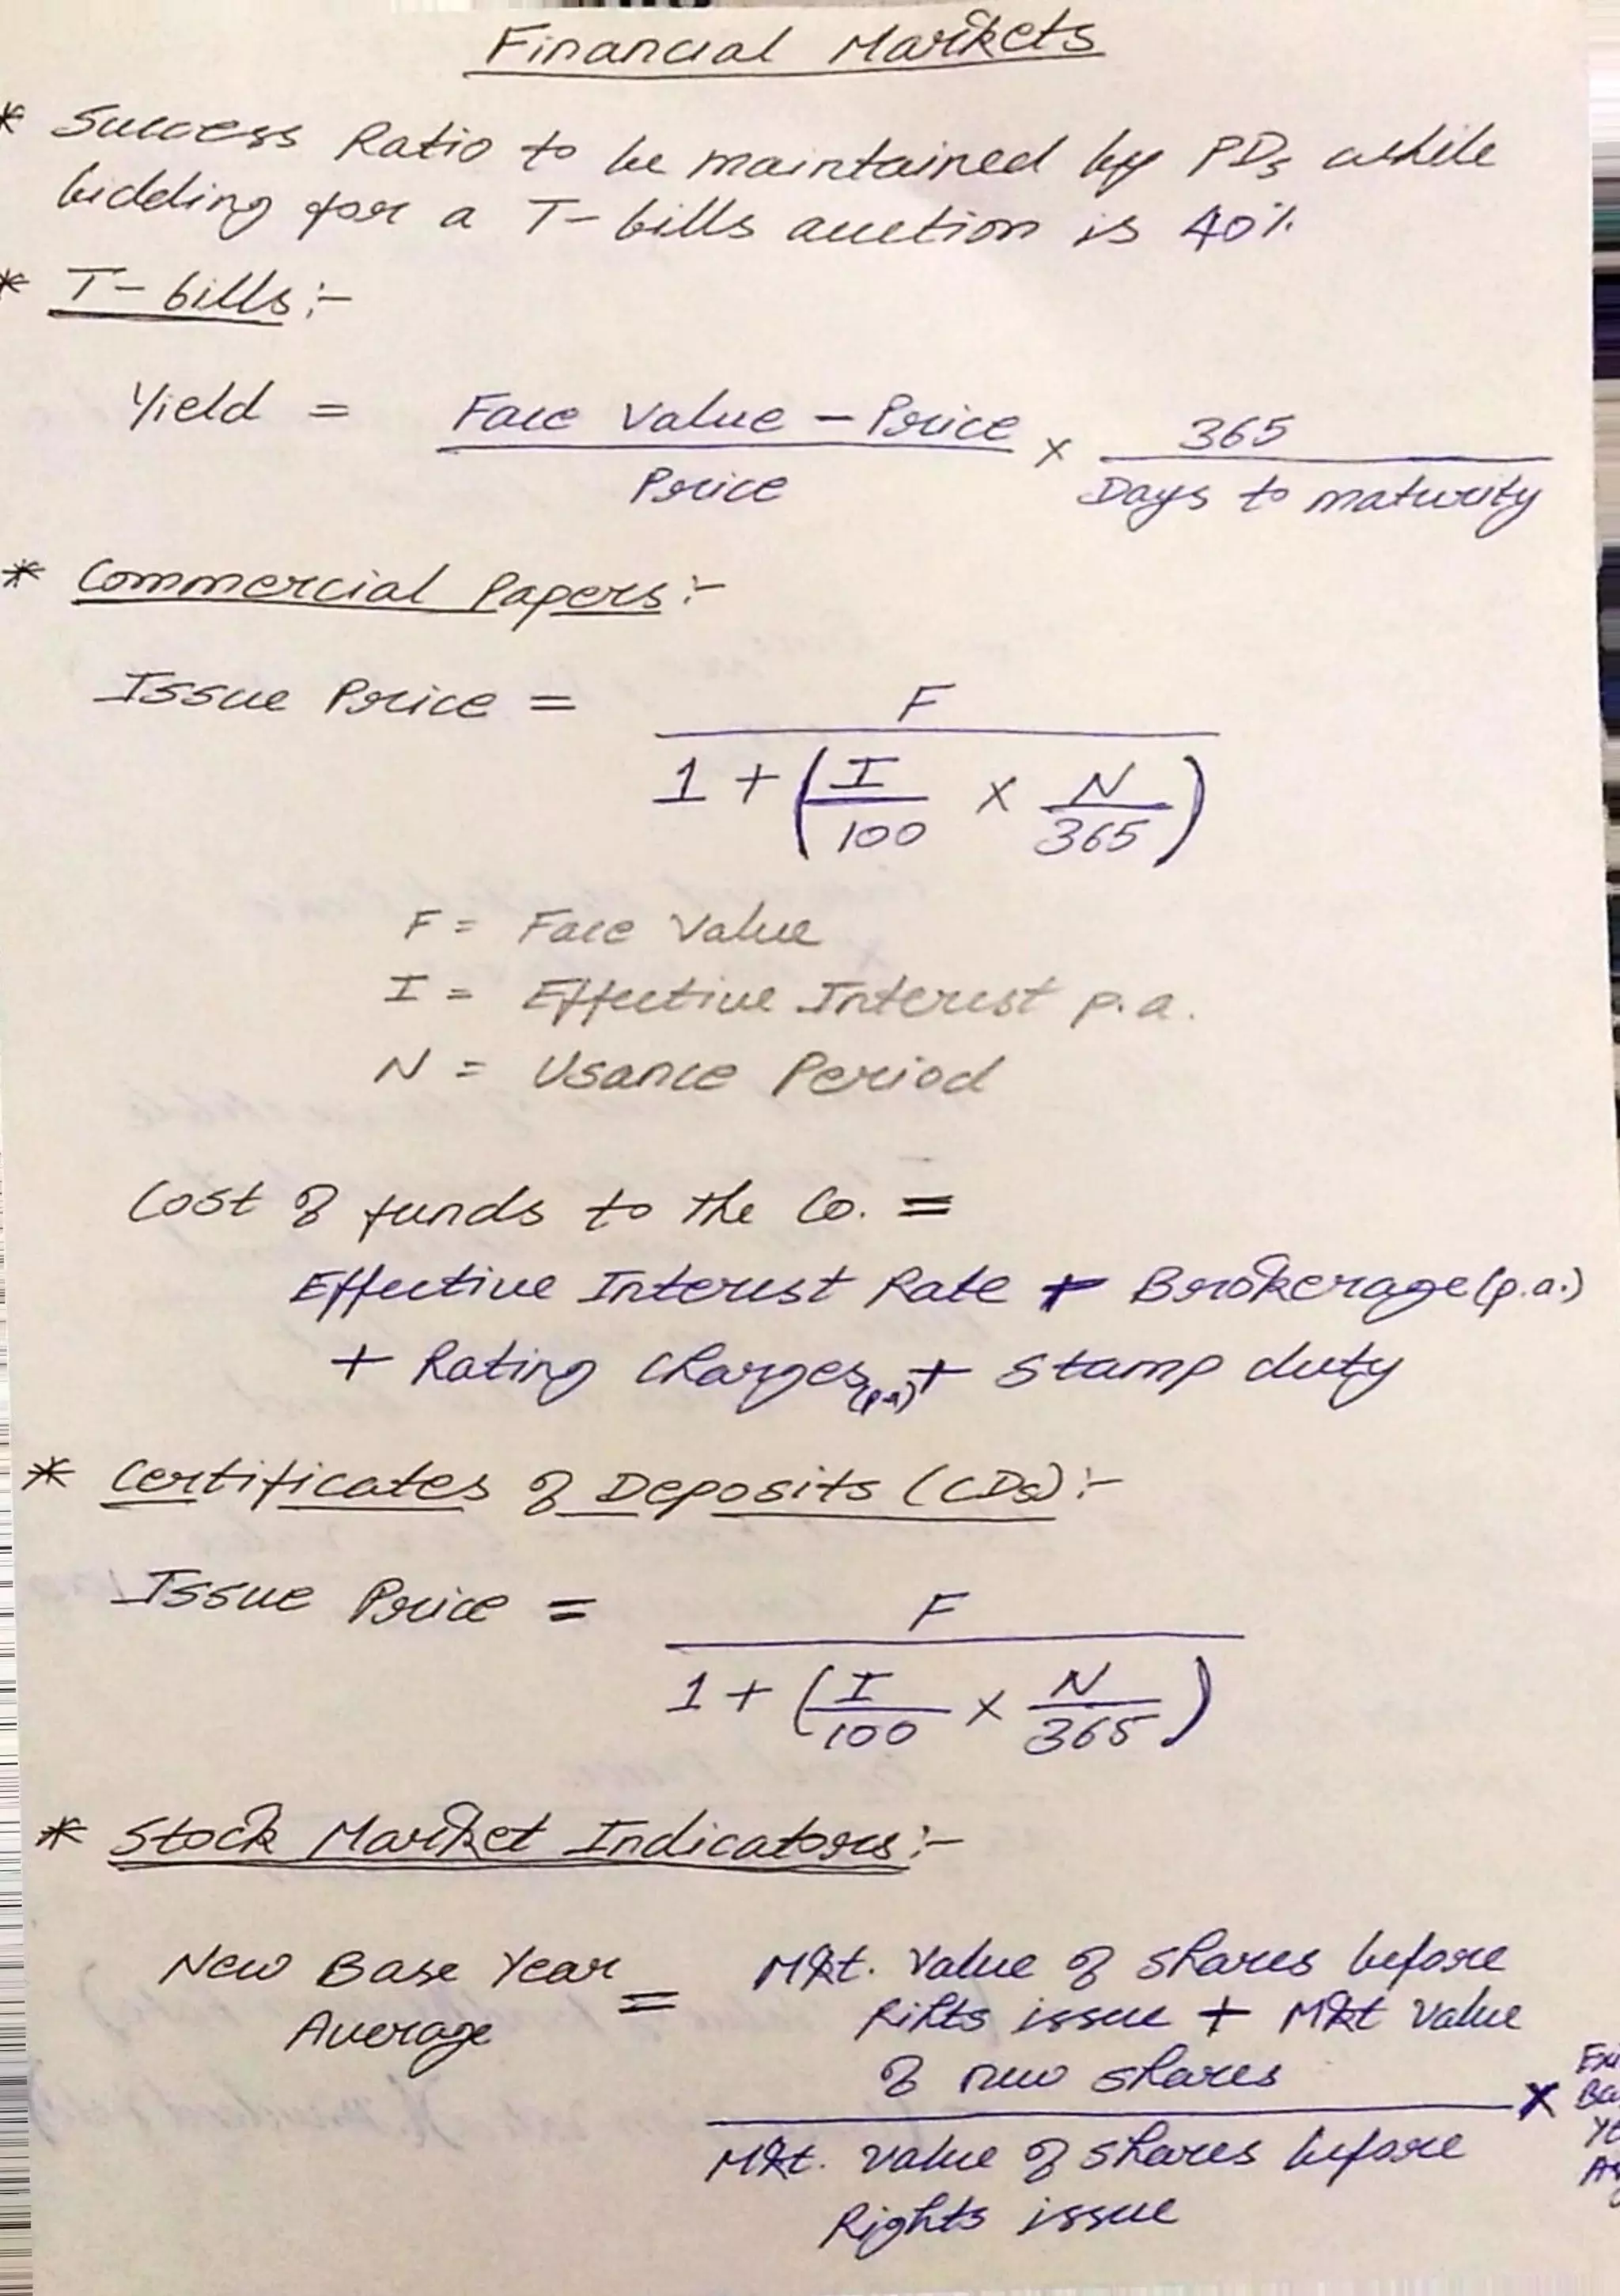 Financial Markets
* Success Ratio to be maintained by PDs while
bidding for a T-bills auction is 40%
* T-bills:-
Yield = Face Value - Price / Price × 365 / Days to maturity
* Commercial Papers:-
Issue Price = F / 1 + (I/100 × N/365)
F = Face Value
I = Effective Interest p.a.
N = Usance Period
Cost of funds to the Co. =
Effective Interest Rate + Brokerage (p.a.)
+ Rating Charges (p.a) + Stamp duty
* Certificates of Deposits (CDs):-
Issue Price = F / 1 + (I/100 × N/365)
* Stock Market Indicators:-
New Base Year Average = Mkt. Value of shares before
Rihts issue + Mkt Value
of new shares
×
Mkt. value of shares before
Rights issue